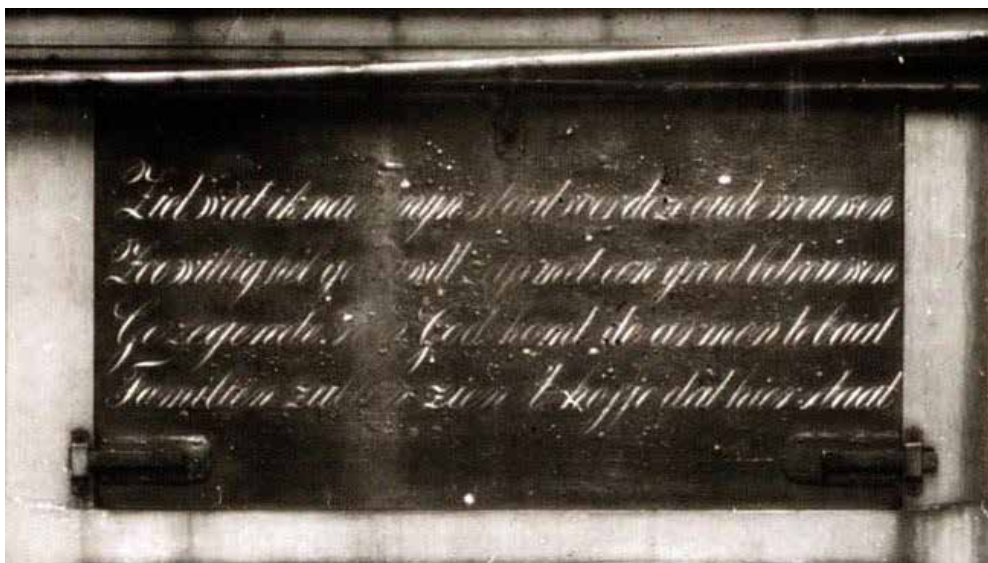 Ziel wat ik na mijn staat voor deze oude vrouwen
Zoo willig met een goed betrouwen
Gezegende God komt de armen te baat
Familien zien 't hofje dat hier staat